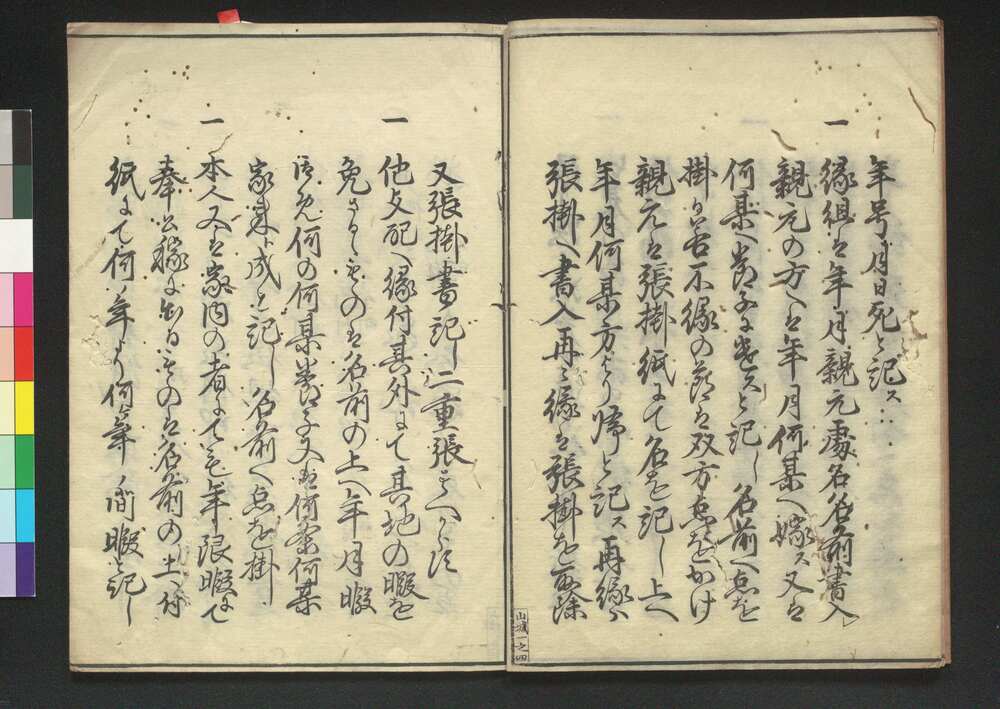 年号月日死と記ス
一
縁組は年月親元處名名前書入
親元の方へは年月何某へ嫁ス又は
何某へ養子に遣スと記し名前へ点を
掛る若不縁の節は双方点をかけ
親元は張掛紙にて名を記し上へ
年月何某方より帰と記ス再縁ハ
張掛へ書入再々縁は張掛を取除
又張掛書記し二重張すへからす
一
他支配へ縁付其外にて其地の暇を
免さるゝものは名前の上へ年月暇
何の何某養子又は何某
家来ニ成と記し名前へ点を掛
一
本人又は家内の者にても年限暇にて
奉公稼に出るものは名前の上へ付
紙にて何ノ年より何年ノ間暇と記し
山城一之四